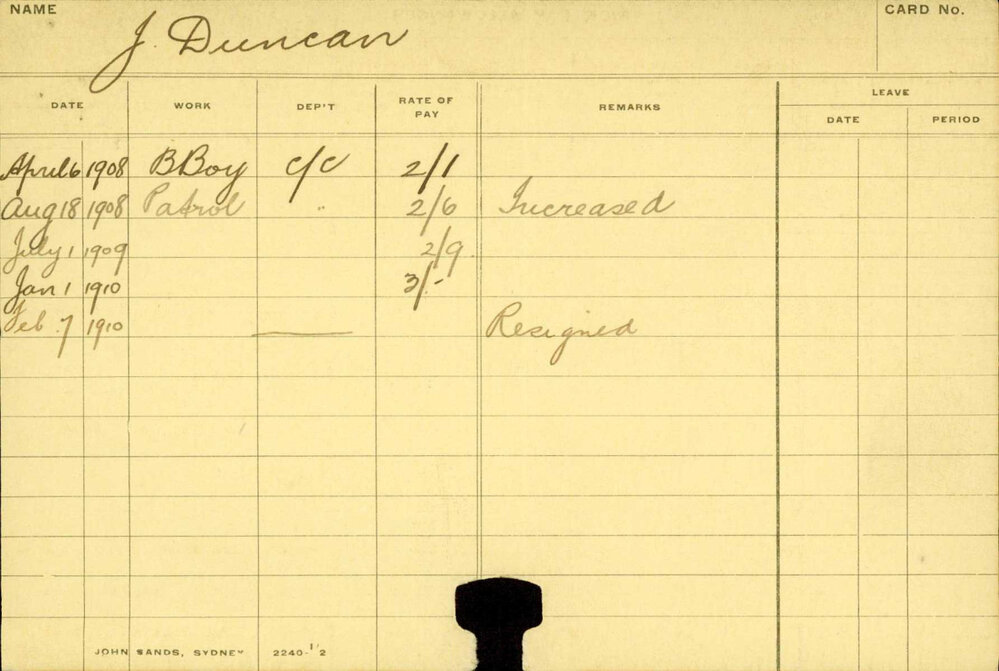 NAME CARD No.
J. Duncan
DATE WORK DEP'T RATE OF PAY REMARKS LEAVE
DATE PERIOD
April 6 1908 BBoy c/c 2/1
Aug 18 1908 Patrol " 2/6 Increased
July 1 1909 2/9
Jan 1 1910 3/-
Feb. 7 1910 — Resigned
JOHN SANDS, SYDNEY 2240-1'2